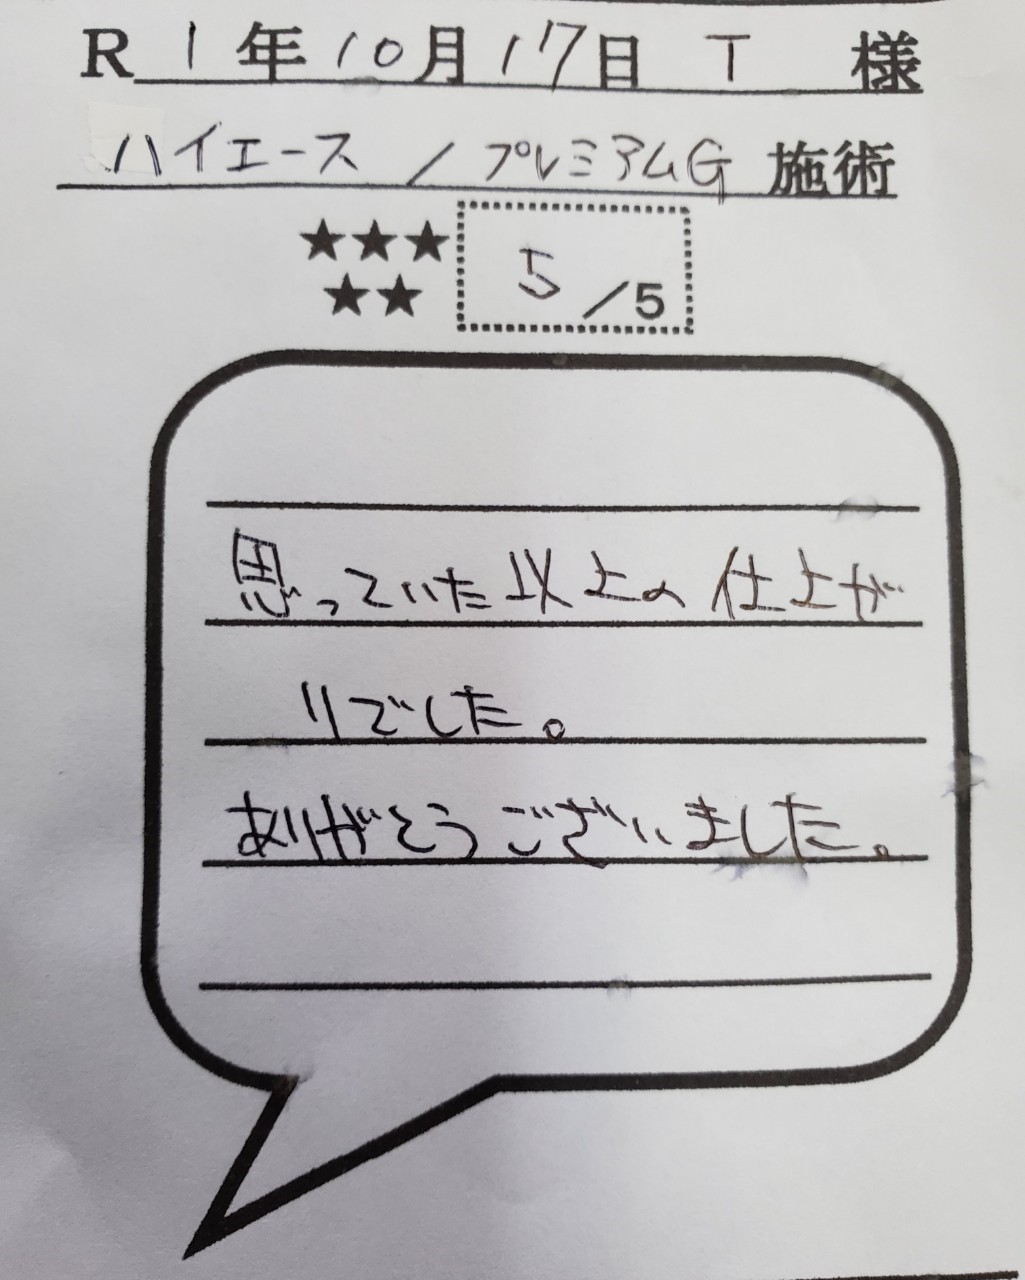 R 1年10月17日 T 様
ハイエース / プレミアムG 施術
★★★
★★
5/5
思っていた以上の仕上が
りでした。
ありがとうございました。